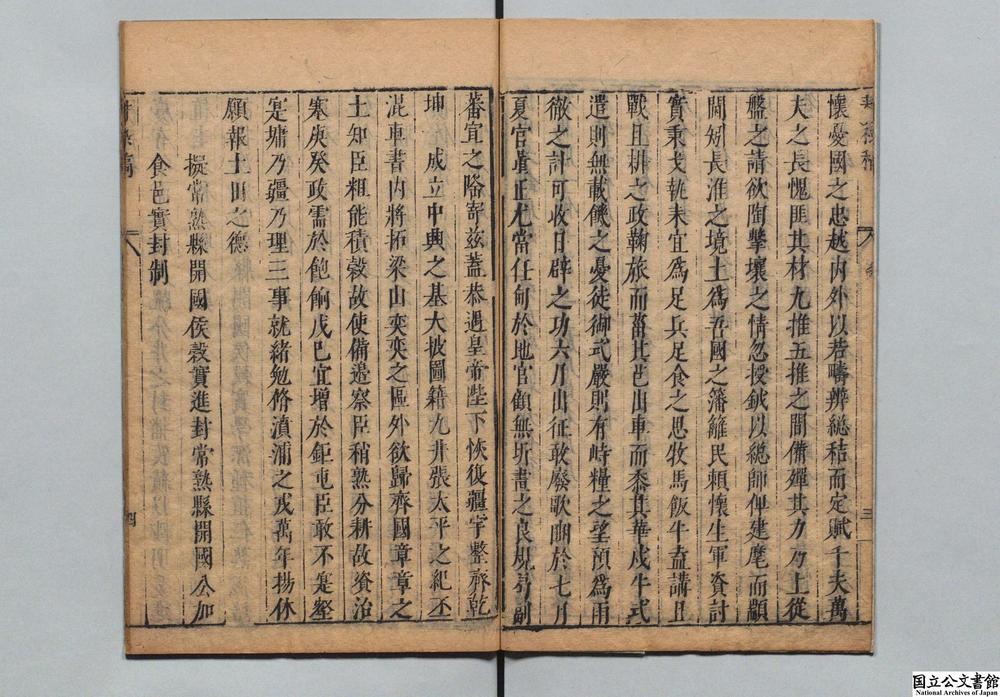 懷憂國之忠越内外以若疇辨緫秸而定賦千夫萬
夫之長愧匪其材九推五推之間備殫其力乃上從
盤之請欲陶擊壤之情忽授鉞以緫師俾建麾而顓
閫矧長淮之境土爲吾國之藩籬民頼懷生軍資討
實秉戈執耒宜爲足兵足食之思牧馬飯牛盍講且
戰且耕之政鞠旅而菑其芑出車而黍其華戍牛式
遣則無載饑之憂徒御式嚴則有峙糧之望預爲雨
徹之計可收日辟之功六月出征敢廢歌豳於七月
夏官眞正尤當任甸於地官顧無圻畫之良規曷副
蕃宣之隆寄兹盖恭遇皇帝陛下恢復疆宇整齊乾
坤成立中典之基大披圖籍九井張太平之紀丕
混車書内將拓梁山奕奕之區外欲歸齊國章章之
土知臣粗能積穀故使備邊察臣稍熟分耕故資治
寨庚癸政需於飽餉戊巳宜增於鉅屯臣敢不寔壑
寔墉乃疆乃理三事就緒勉脩滇浦之戎萬年揚休
願報土田之德
擬常熟縣開國侯穀實進封常熟縣開國公加
食邑實封制
三
四
国立公文書館
National Archives of Japan